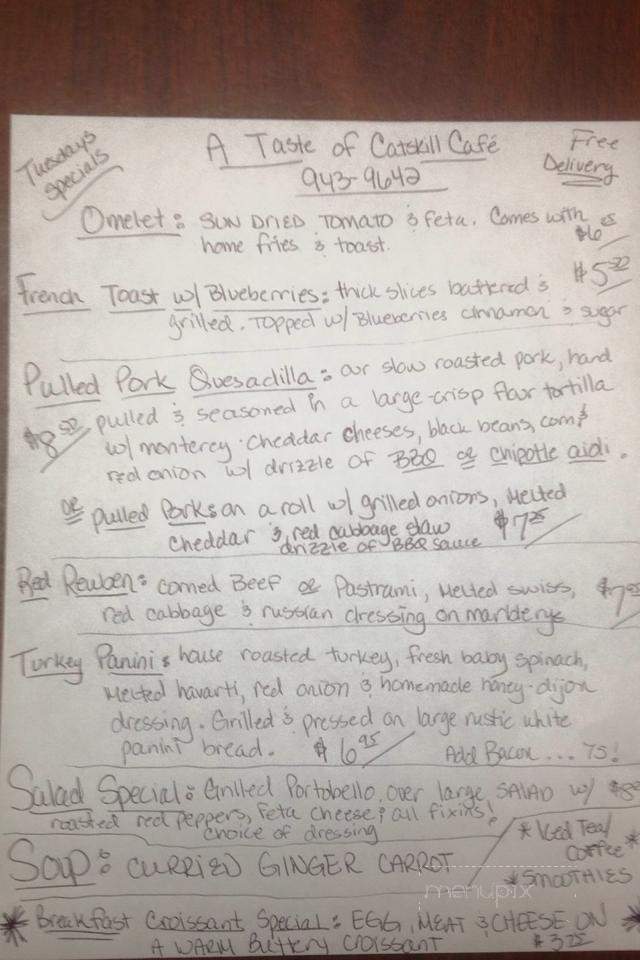 Tuesdays Specials
A Taste of Catskill Café
943-9642
Free Delivery
Omelet: SUN DRIED TOMATO & feta. Comes with
home fries & toast.
French Toast w/ Blueberries: thick slices battered &
grilled. Topped w/ Blueberries cinnamon & sugar
Pulled Pork Quesadilla: our slow roasted pork, hand
pulled & seasoned in a large crisp flour tortilla
w/ monterey-cheddar cheeses, black beans, corn &
red onion w/ drizzle of BBQ or chipotle aioli.
or pulled Pork: on a roll w/ grilled onions, melted
cheddar & red cabbage slaw $7.25
drizzle of BBQ sauce
Red Reuben: corned Beef or Pastrami, melted swiss,
red cabbage & russian dressing on marble rye
Turkey Panini: house roasted turkey, fresh baby spinach,
melted havarti, red onion & homemade honey-dijon
dressing. Grilled & pressed on large rustic white
panini bread. $6.95 Add Bacon... 75!
Salad Special: Grilled Portobello over large SALAD w/
roasted red peppers, feta cheese & all fixins!
choice of dressing
* Iced Tea/
Coffee *
* SMOOTHIES
Soup: CURRIED GINGER CARROT
menupix
* Breakfast Croissant Special: EGG, MEAT & CHEESE ON *
A WARM Buttery CROISSANT